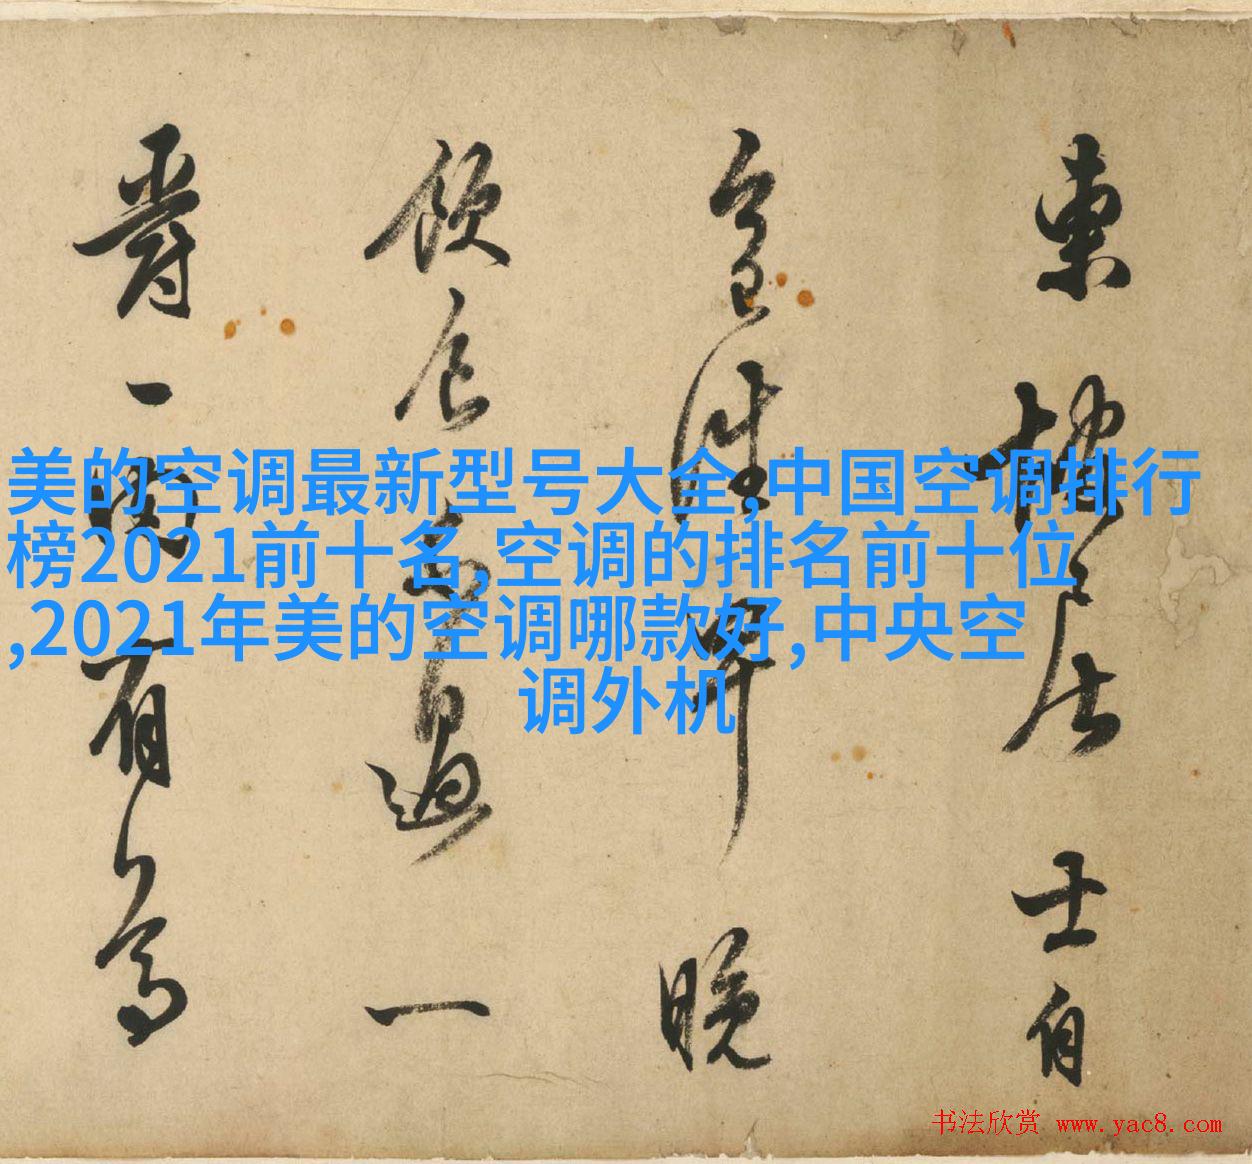 東坡居士自
今日往早晚
飲食不過一
爵一肉有
美的空调最新型号大全,中国空调排行
榜2021前十名,空调的排名前十位
,2021年美的空调哪款好,中央空
调外机
书法欣赏 www.yac8.com